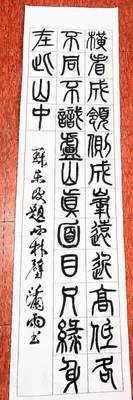 橫看成領側成峯遠近高低各
不同不識盧山真面目只緣身
在此山中
蘇東坡題西林壁 瀟雨書